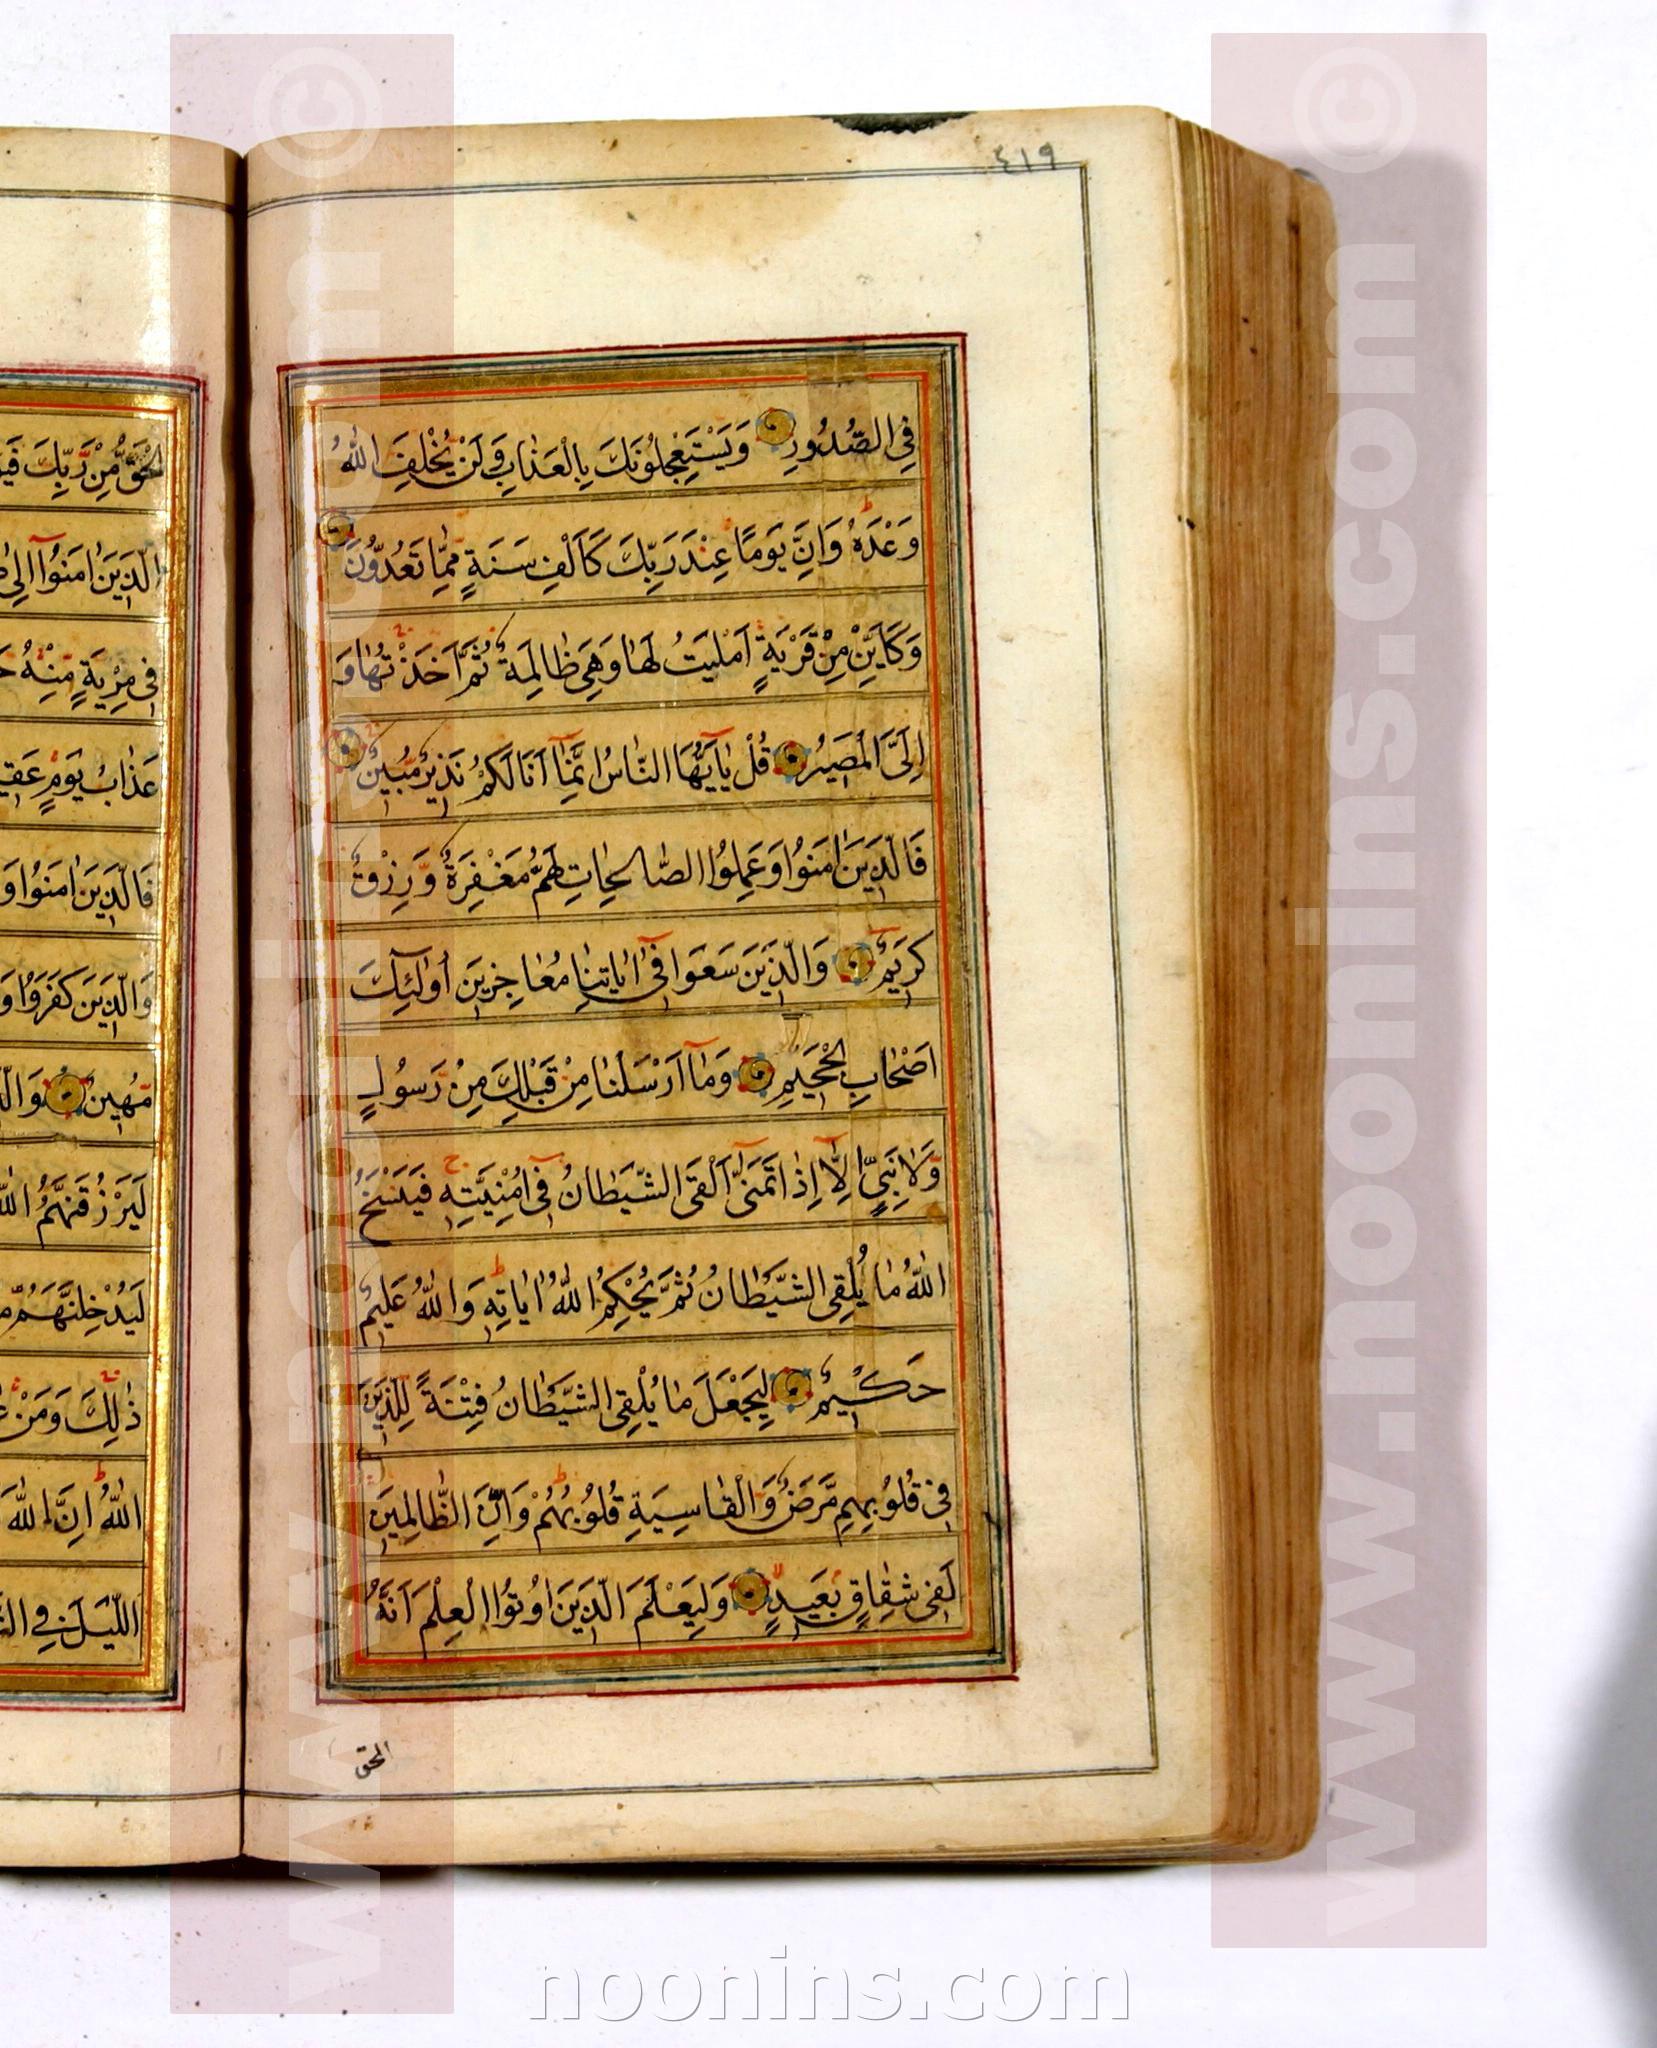 ٤١٩
فِي الصُّدُورِ وَيَسْتَعْجِلُونَكَ بِالْعَذَابِ وَلَنْ يُخْلِفَ اللهُ
وَعْدَهُ وَاِنَّ يَوْمًا عِنْدَ رَبِّكَ كَاَلْفِ سَنَةٍ مِمَّا تَعُدُّونَ
وَكَاَيِّنْ مِنْ قَرْيَةٍ اَمْلَيْتُ لَهَا وَهِيَ ظَالِمَةٌ ثُمَّ اَخَذْتُهَا وَ
اِلَيَّ الْمَصِيرُ قُلْ يَآ اَيُّهَا النَّاسُ اِنَّمَآ اَنَا لَكُمْ نَذِيرٌ مُبِينٌ
فَالَّذِينَ اٰمَنُوا وَعَمِلُوا الصَّالِحَاتِ لَهُمْ مَغْفِرَةٌ وَرِزْقٌ
كَرِيمٌ وَالَّذِينَ سَعَوْا فِيٓ اٰيَاتِنَا مُعَاجِزِينَ اُولٰٓئِكَ
اَصْحَابُ الْجَحِيمِ وَمَآ اَرْسَلْنَا مِنْ قَبْلِكَ مِنْ رَسُولٍ
وَلَا نَبِيٍّ اِلَّآ اِذَا تَمَنّٰىٓ اَلْقَى الشَّيْطَانُ فِيٓ اُمْنِيَّتِهِ فَيَنْسَخُ
اللهُ مَا يُلْقِي الشَّيْطَانُ ثُمَّ يُحْكِمُ اللهُ اٰيَاتِهِ وَاللهُ عَلِيمٌ
حَكِيمٌ لِيَجْعَلَ مَا يُلْقِي الشَّيْطَانُ فِتْنَةً لِلَّذِينَ
فِي قُلُوبِهِمْ مَرَضٌ وَالْقَاسِيَةِ قُلُوبُهُمْ وَاِنَّ الظَّالِمِينَ
لَفِي شِقَاقٍ بَعِيدٍ وَلِيَعْلَمَ الَّذِينَ اُوتُوا الْعِلْمَ اَنَّهُ
الحق
الْحَقُّ مِنْ رَبِّكَ
الَّذِينَ اٰمَنُوٓا اِلٰى
فِي مِرْيَةٍ مِنْهُ
عَذَابُ يَوْمٍ
فَالَّذِينَ اٰمَنُوا وَ
وَالَّذِينَ كَفَرُوا وَ
مُهِينٌ
لَيَرْزُقَنَّهُمُ
لَيُدْخِلَنَّهُمْ
ذٰلِكَ وَمَنْ
اللهُ اِنَّ اللهَ
اللَّيْلَ فِي
www.noonins.com ©
www.noonins.com ©
noonins.com